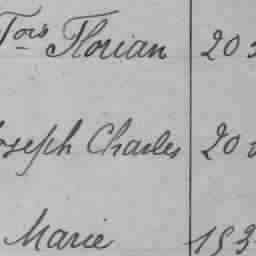 Fois Florian 20
Joseph Charles 20
Marie 193